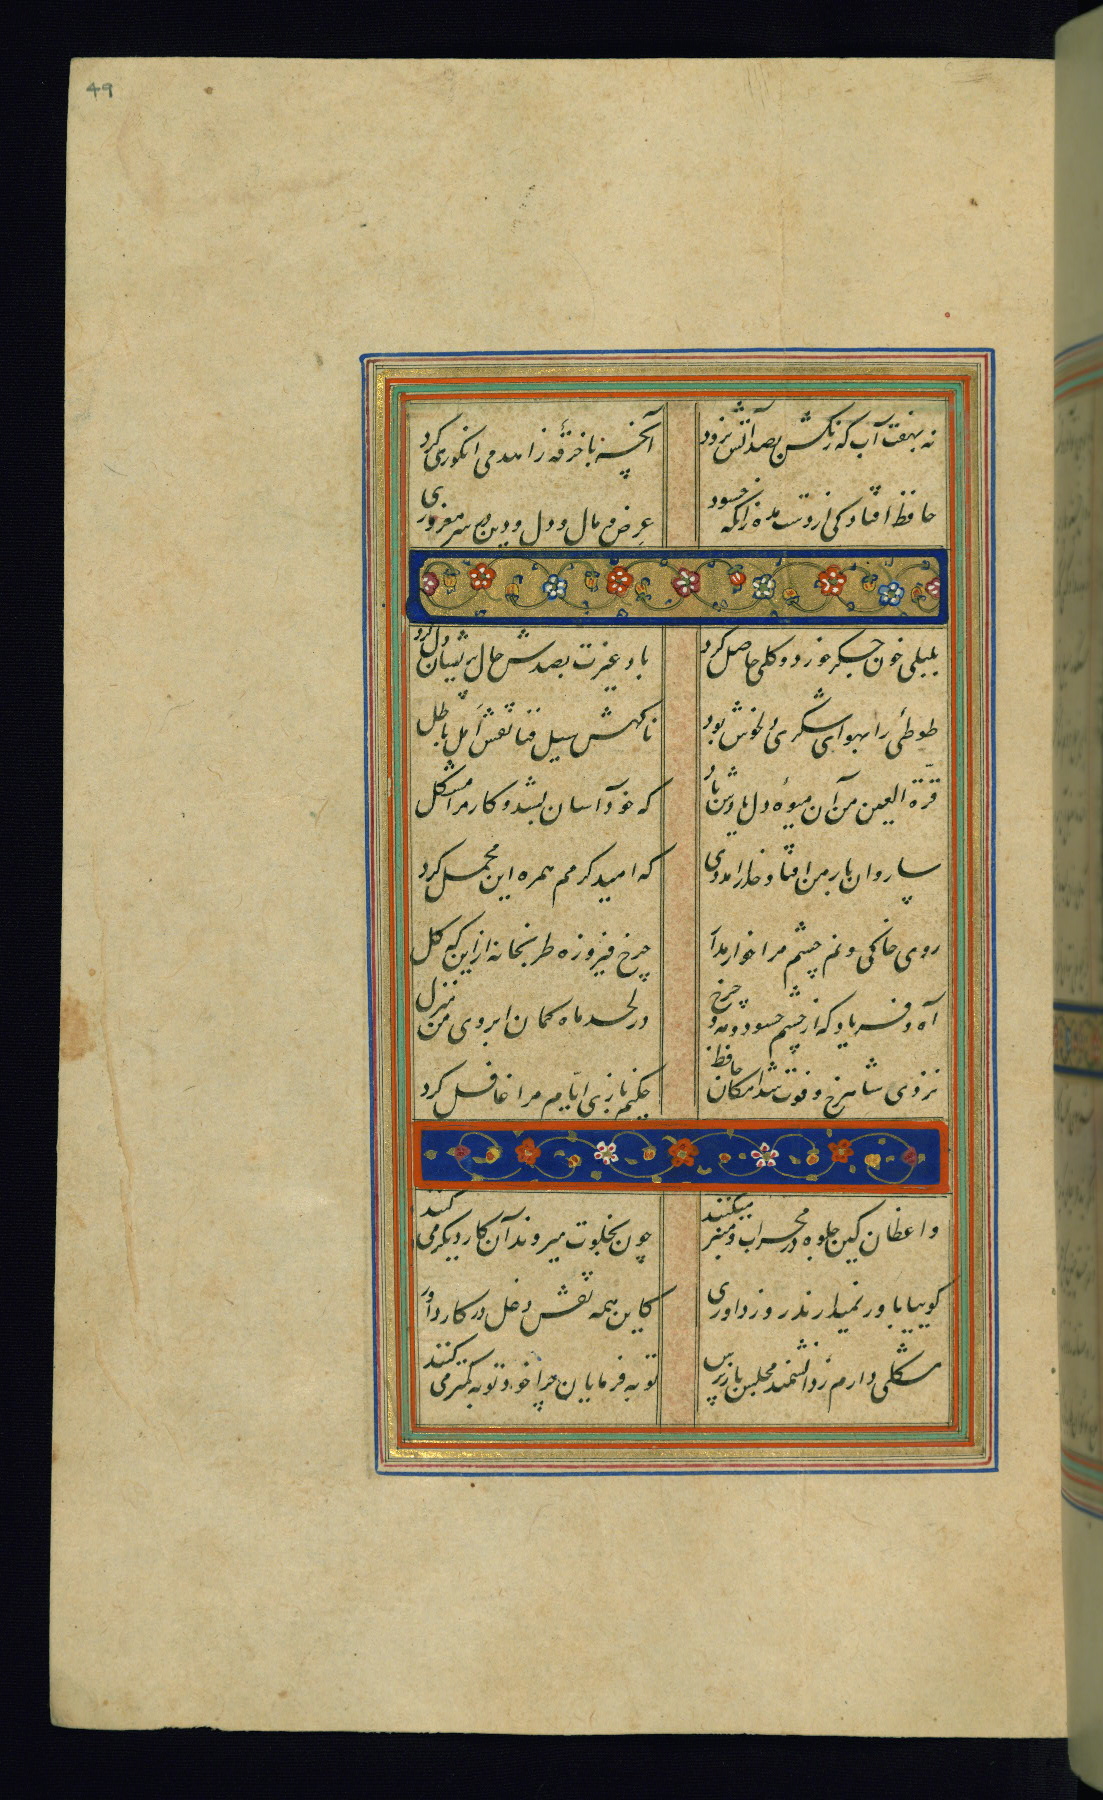 49
نه بهفت آب که رنگش بصد آتش نرود
آنچه با خرقهٔ زاهد می انگوری کرد
حافظ افتادگی از دست مده زانکه حسود
عرض و مال و دل و دین در سر مغروری
بلبلی خون جگر خورد و گلی حاصل کرد
باد غیرت بصدش خار پریشان دل کرد
طوطئی را بهوای شکری دلخوش بود
ناگهش سیل فنا نقش امل باطل
قرة العین من آن میوهٔ دل یادش باد
که خود آسان بشد و کار مرا مشکل
ساروان بار من افتاد خدا را مددی
که امید کرمم همره این محمل کرد
روی خاکی و نم چشم مرا خوار مدار
چرخ فیروزه طربخانه از این کهگل
آه و فریاد که از چشم حسود مه و چرخ
در لحد ماه کمان ابروی من منزل
نزدی شاهرخ و فوت شد امکان حافظ
چکنم بازی ایام مرا غافل کرد
واعظان کین جلوه در محراب و منبر میکنند
چون بخلوت میروند آن کار دیگر می کنند
گوییا باور نمیدارند روز داوری
کاین همه نقش دغل در کار داور
مشکلی دارم ز دانشمند مجلس باز پرس
توبه فرمایان چرا خود توبه کمتر می کنند